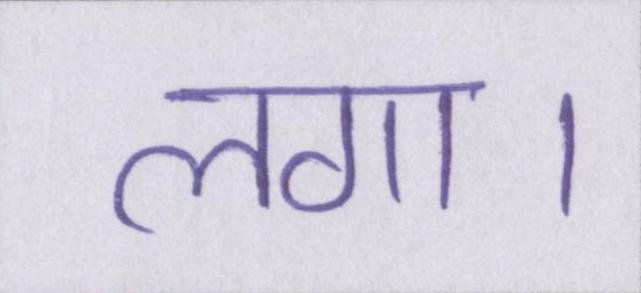 लगा।